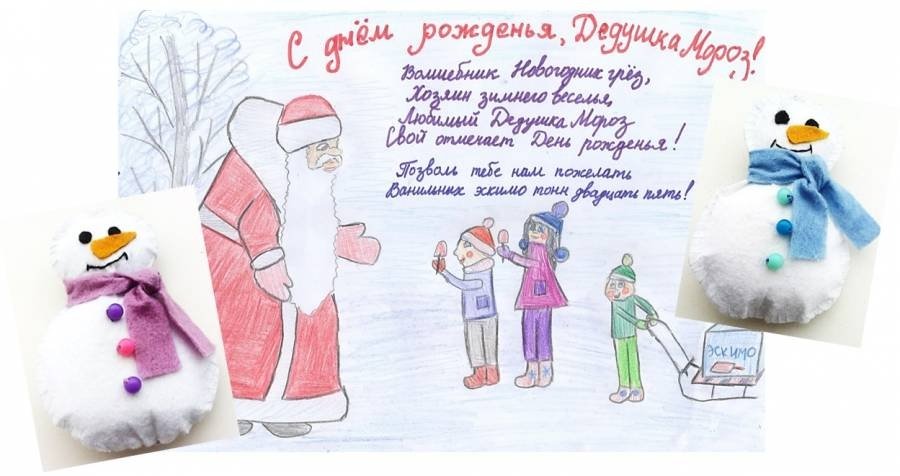 С днём рожденья, Дедушка Мороз!
Волшебник Новогодних грёз,
Хозяин зимнего веселья,
Любимый Дедушка Мороз
Свой отмечает День рожденья!
Позволь тебе нам пожелать
Ванильных эскимо тонн двадцать пять!
ЭСКИМО